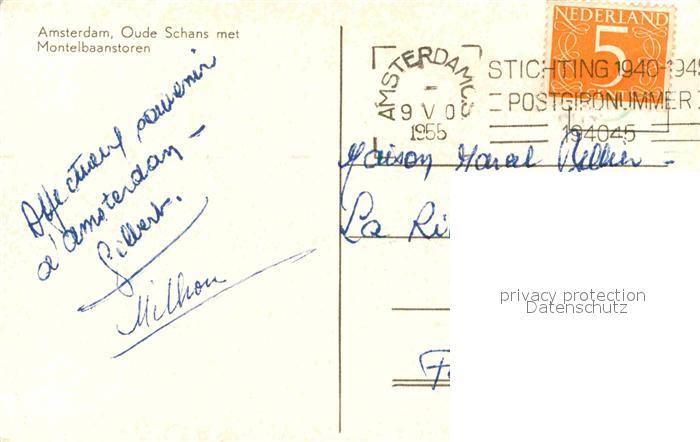 Amsterdam, Oude Schans met
Montelbaanstoren
Affectueux souvenir
d'amsterdam -
Gilbert.
Milhou
AMSTERDAM CS
9 V 0
1955
STICHTING 1940-194
POSTGIRONUMMER
194045
NEDERLAND
5
Maison Marcel
La Ri
privacy protection
Datenschutz